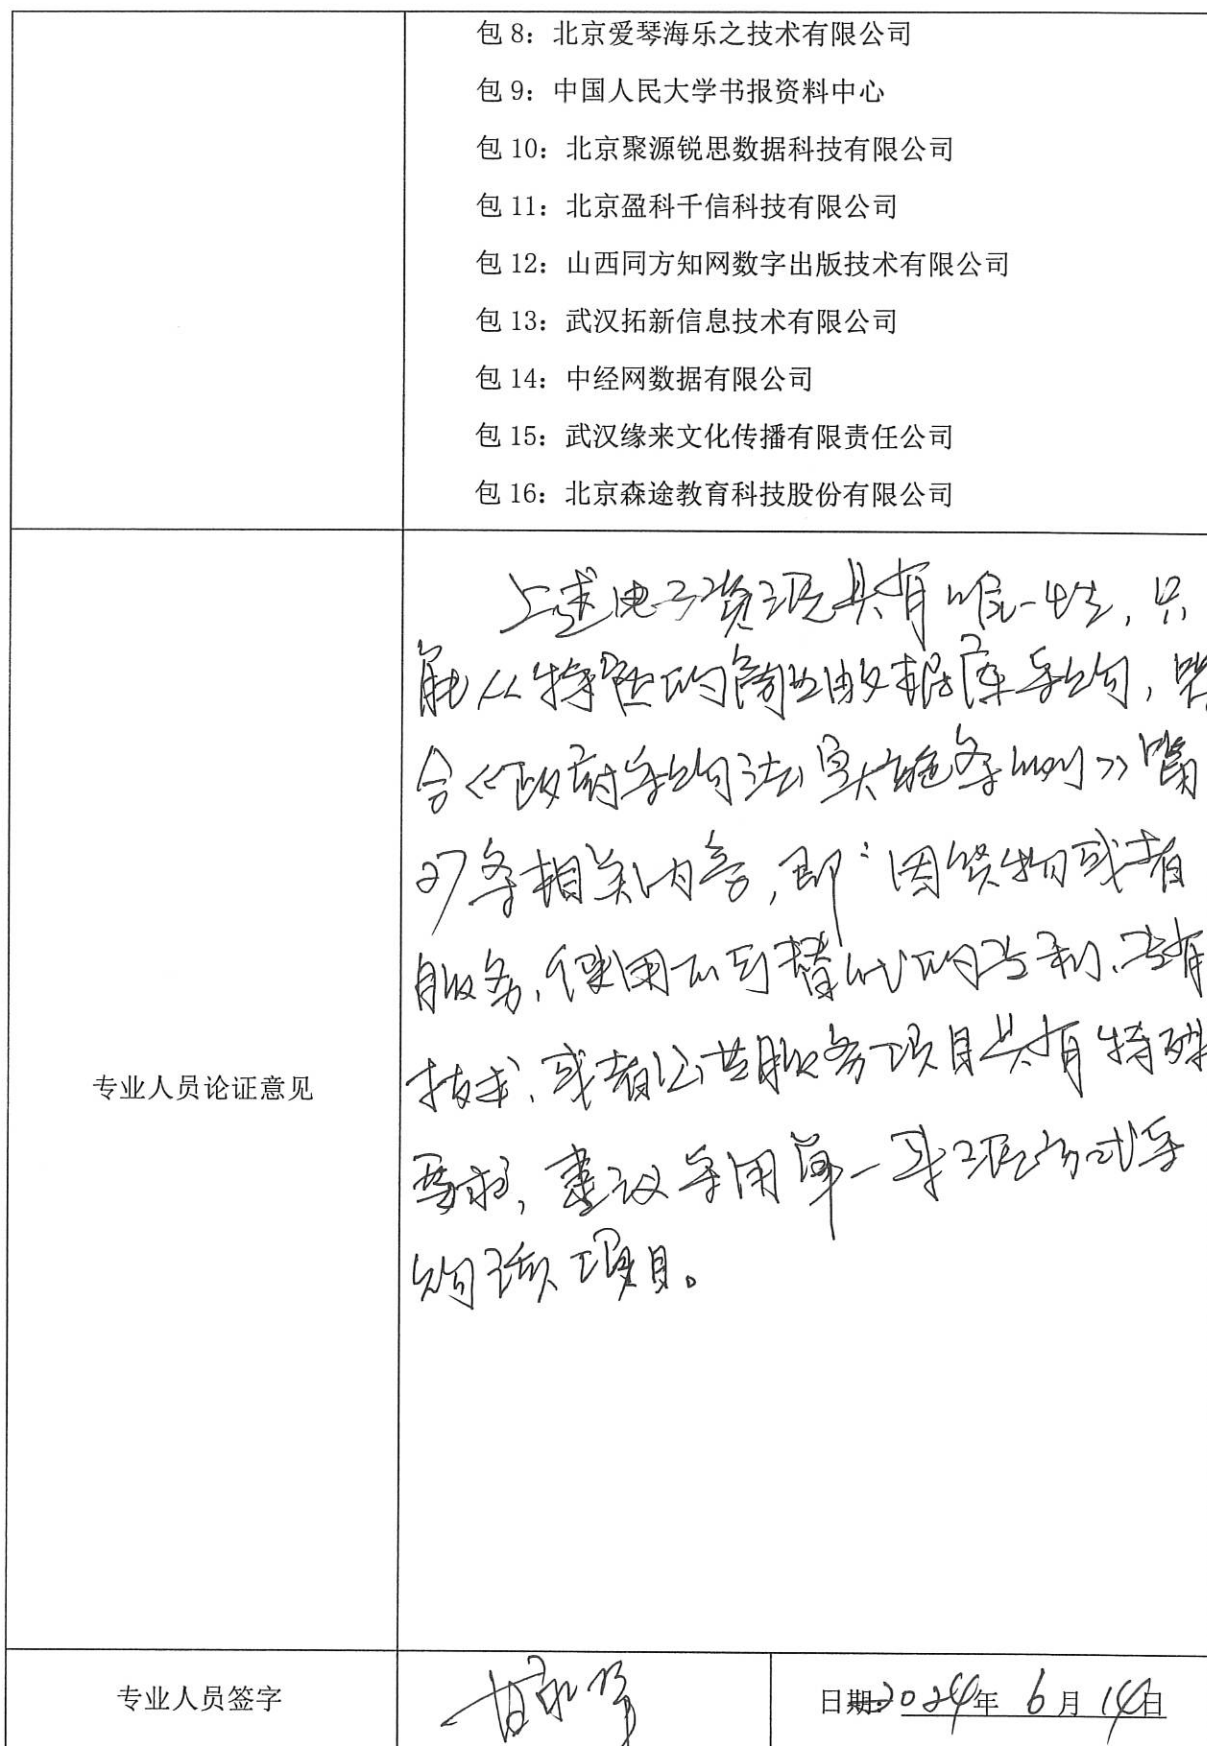 包 8：北京爱琴海乐之技术有限公司
包 9：中国人民大学书报资料中心
包 10：北京聚源锐思数据科技有限公司
包 11：北京盈科千信科技有限公司
包 12：山西同方知网数字出版技术有限公司
包 13：武汉拓新信息技术有限公司
包 14：中经网数据有限公司
包 15：武汉缘来文化传播有限责任公司
包 16：北京森途教育科技股份有限公司
专业人员论证意见
上述电子资源具有唯一性，只
能从特定的商业数据库采购，符
合《政府采购法实施条例》第
27条相关内容，即：因货物或者
服务，使用不可替代的专利、专有
技术，或者公共服务项目具有特殊
要求，建议采用单一来源方式采
购该项目。
专业人员签字
日期：2024年 6月 14日